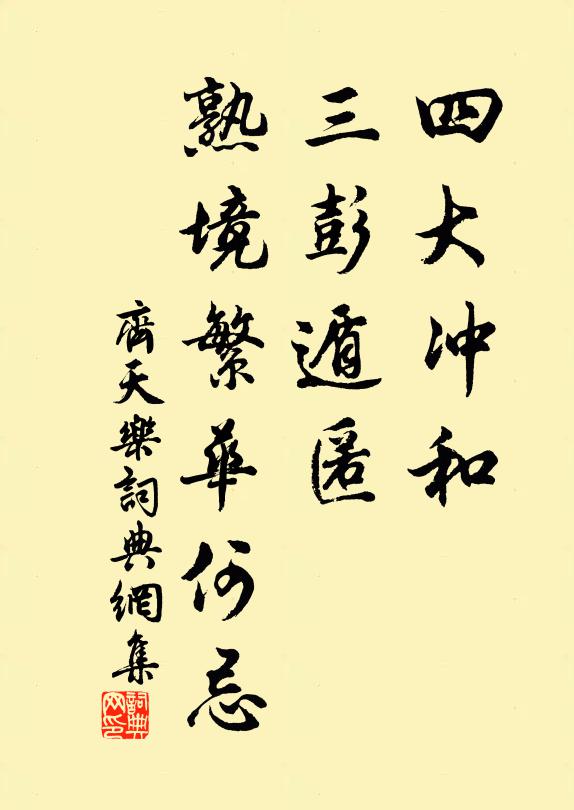 四大冲和
三彭遁匿
熟境繁华何忌
齊天樂詞典網集
詞典网印